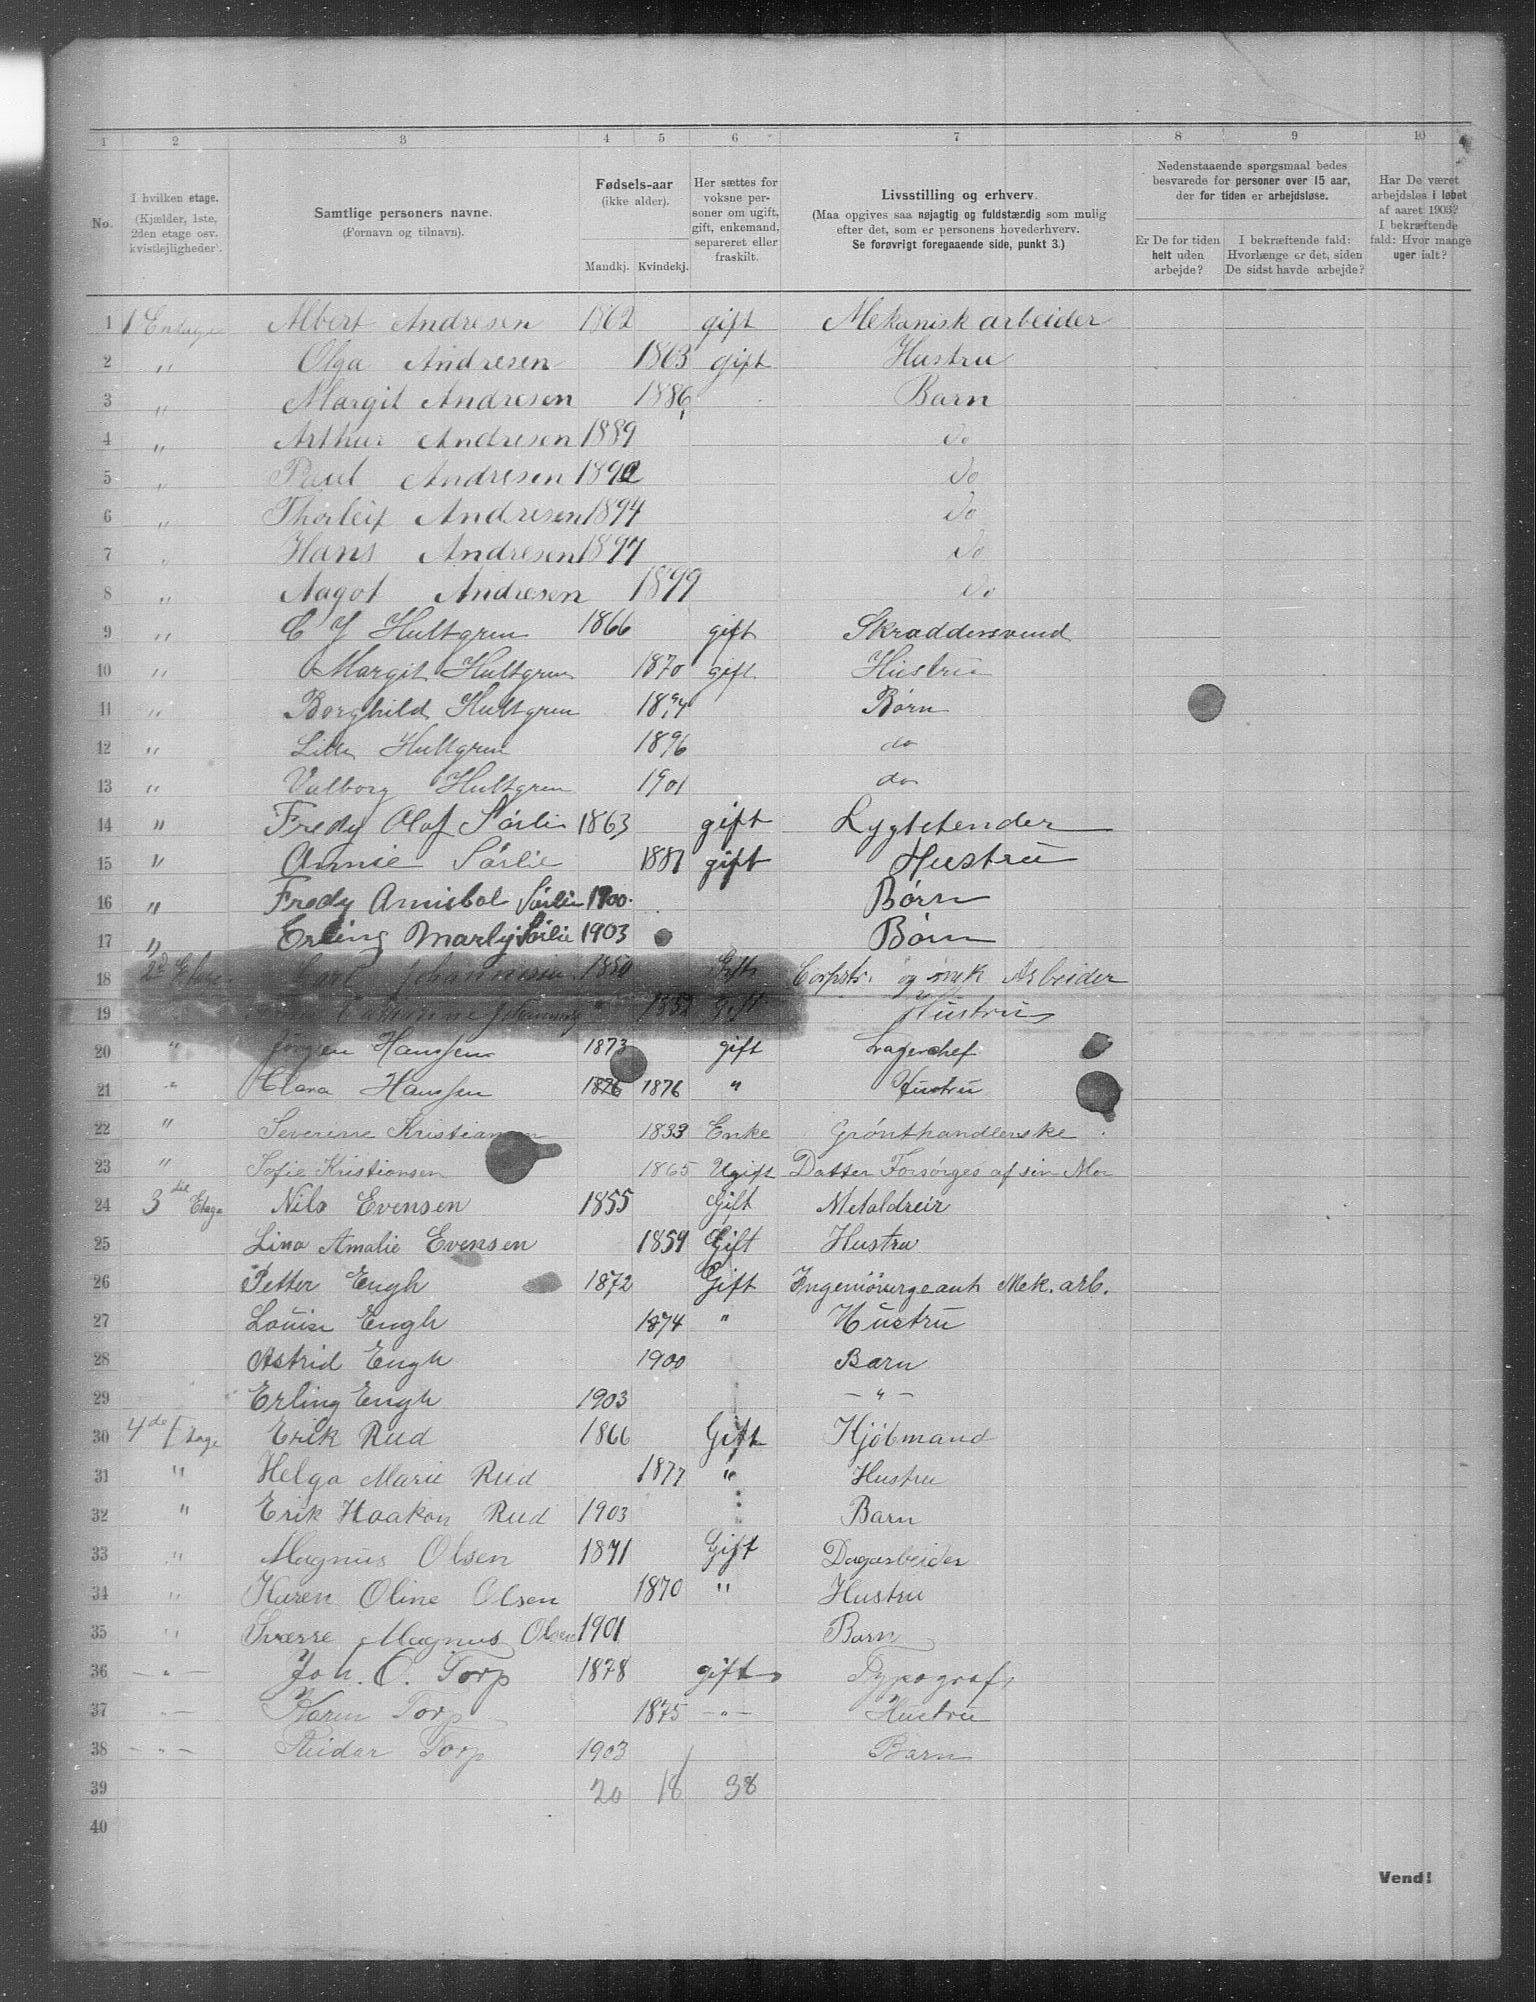 1 2 3 4 5 6 7 8 9 10
No. I hvilken etage. (Kjælder, 1ste, 2den etage osv. kvistlejligheder). Samtlige personers navne. (Fornavn og tilnavn). Fødsels-aar (ikke alder). Mandkj. Kvindekj. Her sættes for voksne personer om ugift, gift, enkemand, separeret eller fraskilt. Livsstilling og erhverv. (Maa opgives saa nøjagtig og fuldstærdig som mulig efter det, som er personens hovederhverv. Se forøvrigt foregaaende side, punkt 3.) Nedenstaaende spørgsmaal bedes besvarede for personer over 15 aar, der for tiden er arbejdsløse. Er De for tiden helt uden arbejde? I bekræftende fald: Hvorlænge er det, siden De sidst havde arbejde? Har De været arbejdsløs i løbet af aaret 1903? I bekræftende fald: Hvor mange uger ialt?
1 1 Etage Albert Andresen 1862 gift Mekanisk arbeider
2 " Olga Andresen 1863 gift Hustru
3 " Margit Andresen 1886 Barn
4 " Arthur Andresen 1889 do
5 " Paul Andresen 1892 do
6 " Thorleif Andresen 1894 do
7 " Hans Andresen 1897 do
8 " Aagot Andresen 1899 do
9 " C J Hultgren 1866 gift Skræddersvend
10 " Margit Hultgren 1870 gift Hustru
11 " Borghild Hultgren 1894 Børn
12 " Lilly Hultgren 1896 do
13 " Valborg Hultgren 1901 do
14 " Fredy Olaf Sørlie 1863 gift Lygtetender
15 " Annie Sørlie 1881 gift Hustru
16 " Fredy Annibal Sørlie 1900 Børn
17 " Erling Marly Sørlie 1903 Børn
18 2d Etage Carl Johannesen 1850 Gift og mek Arbeider
19 Cathrine 1852 Gift Hustru
20 " Jørgen Hanssen 1873 gift Lagerchef
21 " Clara Hanssen 1876 1876 " Hustru
22 " Severine Kristiansen 1833 Enke Grønthandlerske
23 " Sofie Kristiansen 1865 Ugift Datter Forsørges af sin Mor
24 3die Etage Nils Evensen 1855 Gift Metaldreir
25 Lina Amalie Evensen 1859 Gift Hustru
26 Petter Engh 1872 Gift Mek. arb.
27 Louise Engh 1874 " Hustru
28 Astrid Engh 1900 Barn
29 Erling Engh 1903 — " —
30 4de Etage Erik Rud 1866 Gift Kjøbmand
31 " Helga Marie Rud 1877 " Hustru
32 " Erik Haakon Rud 1903 Barn
33 " Magnus Olsen 1871 Gift Dagarbeider
34 " Karen Oline Olsen 1870 " Hustru
35 " Sverre Magnus Olsen 1901 Barn
36 — " — Joh. O. Torp 1878 gift Typograf
37 — " — Karen Torp 1875 — " — Hustru
38 — " — Reidar Torp 1903 Barn
39 20 18 38
40
Vend!